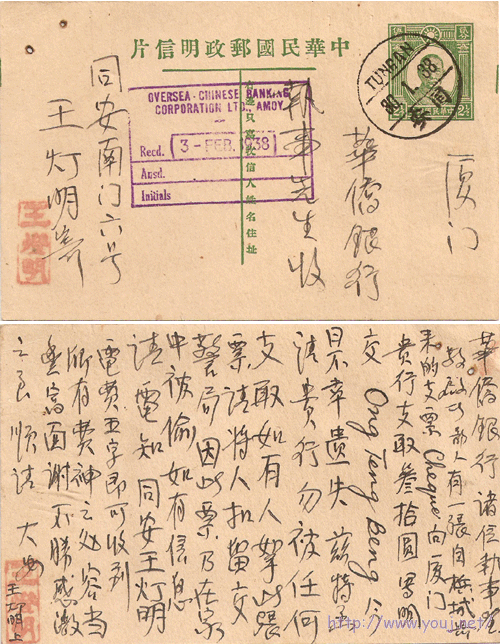 中華民國郵政明信片
2½
2½
TUNGAN
OVERSEA-CHINESE BANKING
CORPORATION LTD., AMOY.
Recd. 3-FEB.1938
Ansd.
Initials
厦门
華僑銀行
執事先生收
只寫收信人姓名住址
同安南门六号
王灯明寄
王燈明
華僑銀行諸位執事
人有一張自梹城
来的支票Cheque向厦门
贵行支取叁拾圆写明
交 Ong Teng Beng 今
日不幸遗失兹特
请贵行勿被任何
支取如有人拏此張
票請将人扣留交
警局因此票乃在家
中被偷如有信息
请電知同安王灯明
電费五字即可收到
所有费神之处容当
面谢不勝感激
之良順請大安
王灯明上
http://www.youji.net/